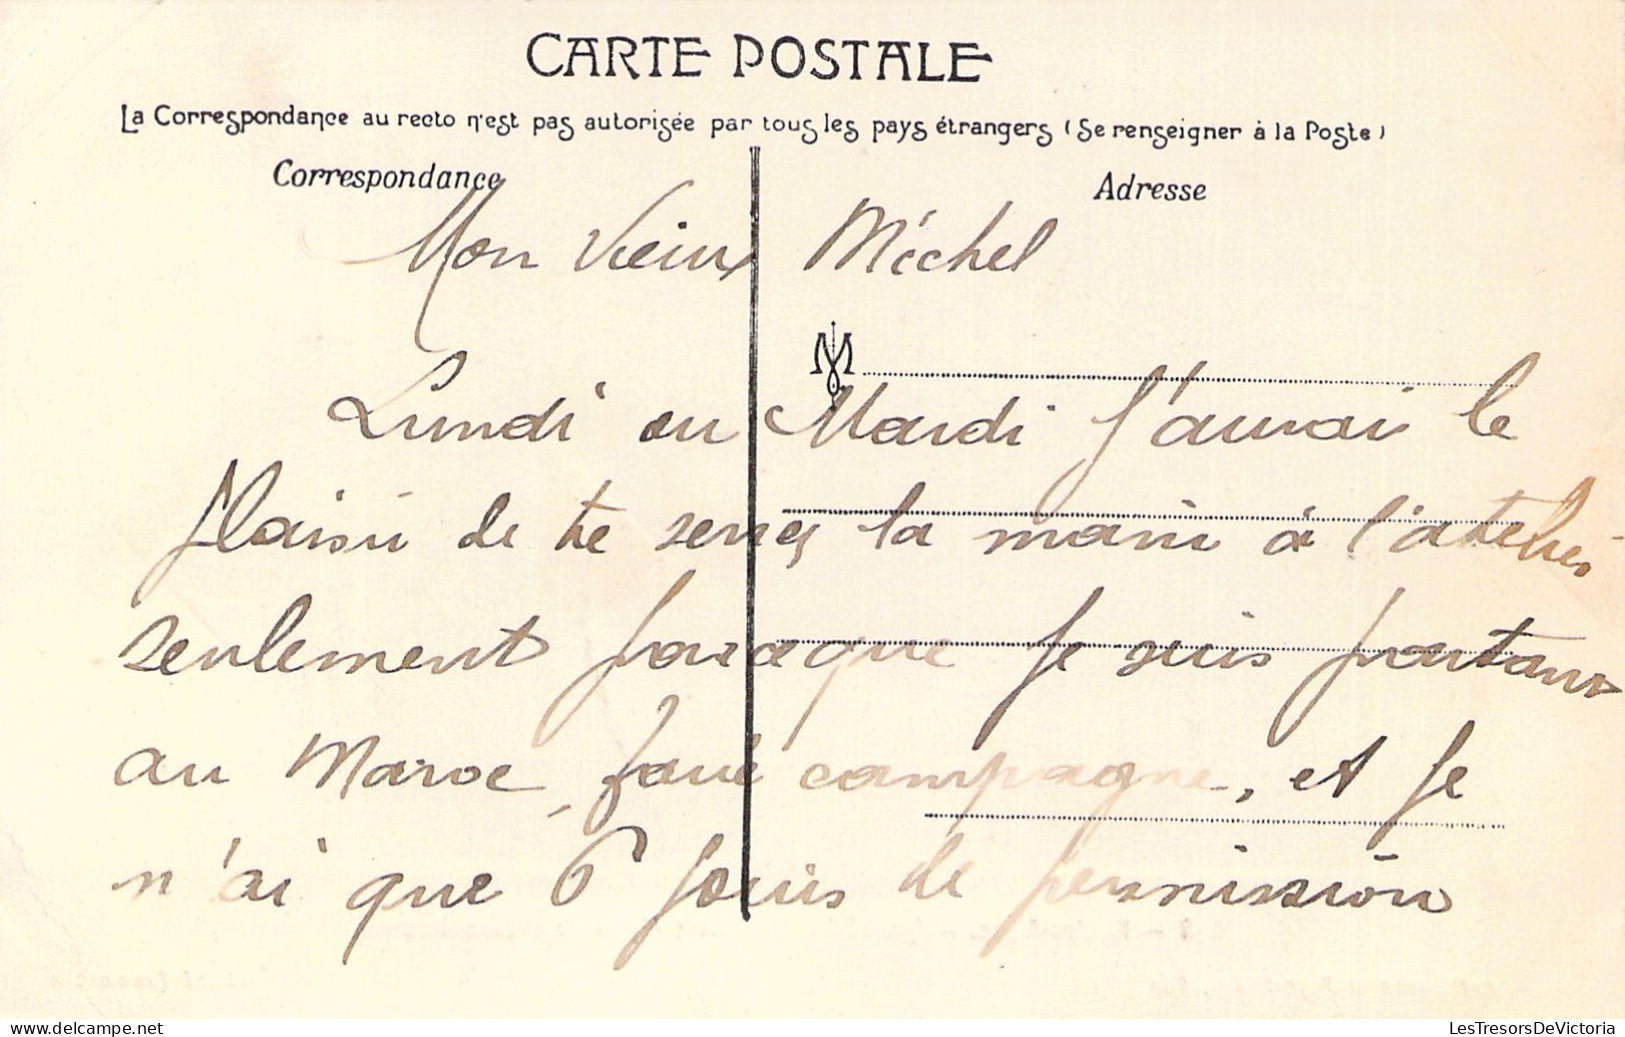 CARTE POSTALE
La Correspondance au recto n'est pas autorisée par tous les pays étrangers (Se renseigner à la Poste)
Correspondance
Adresse
Mon Vieux Michel
Lundi ou Mardi j'aurai le
plaisir de te serrer la main à l'atelier
seulement parceque je suis partant
au Maroc, campagne, et je
n'ai que 6 jours de permission
delcampe.net
LesTresorsDeVictoria